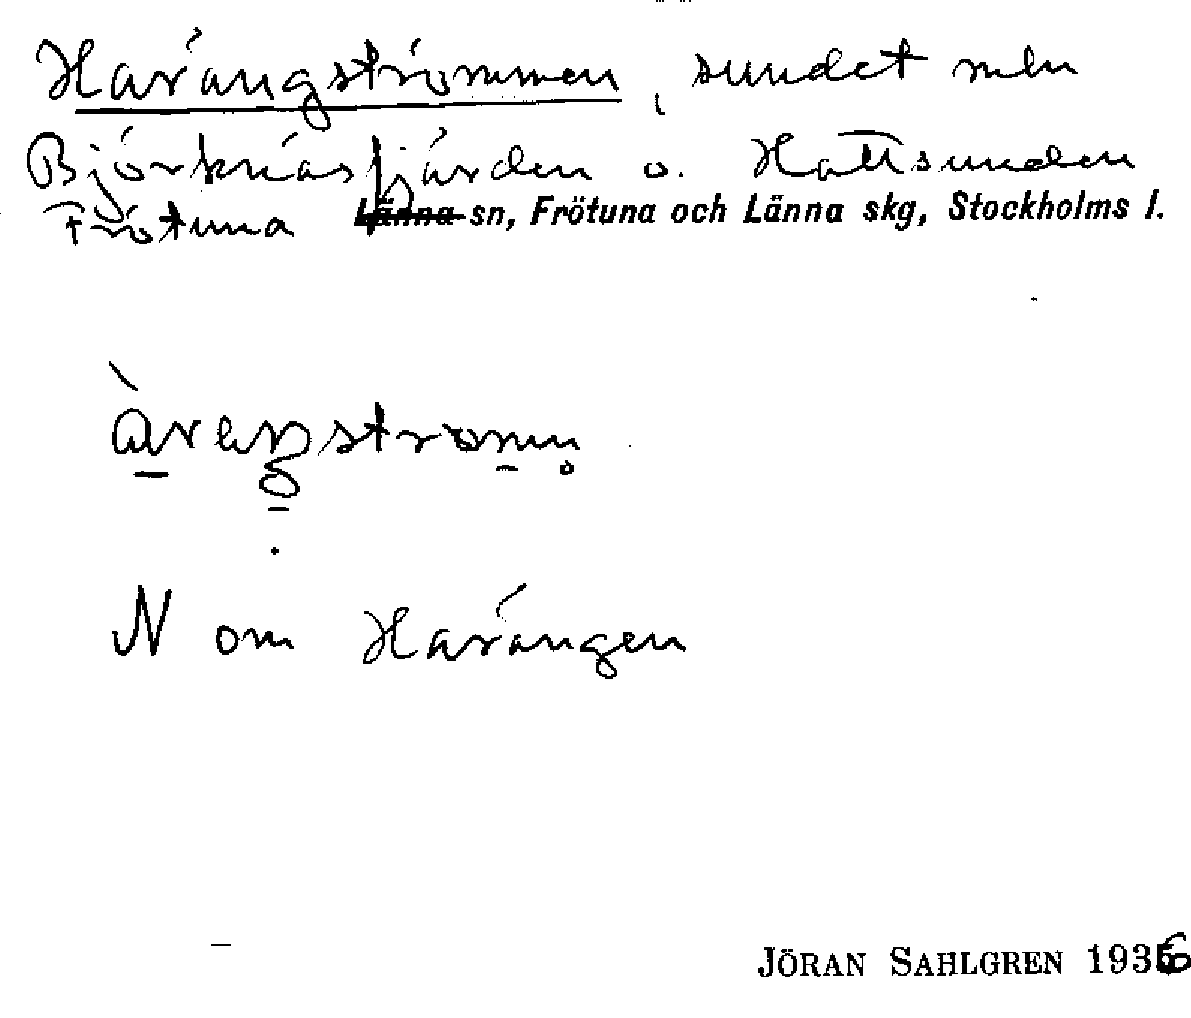 Harängströmmen, sundet mln
Björknäsfjärden o. Hattsunden
Frötuna Länna sn, Frötuna och Länna skg, Stockholms l.
àreŋstromn̥
N om Harängen
JÖRAN SAHLGREN 1936